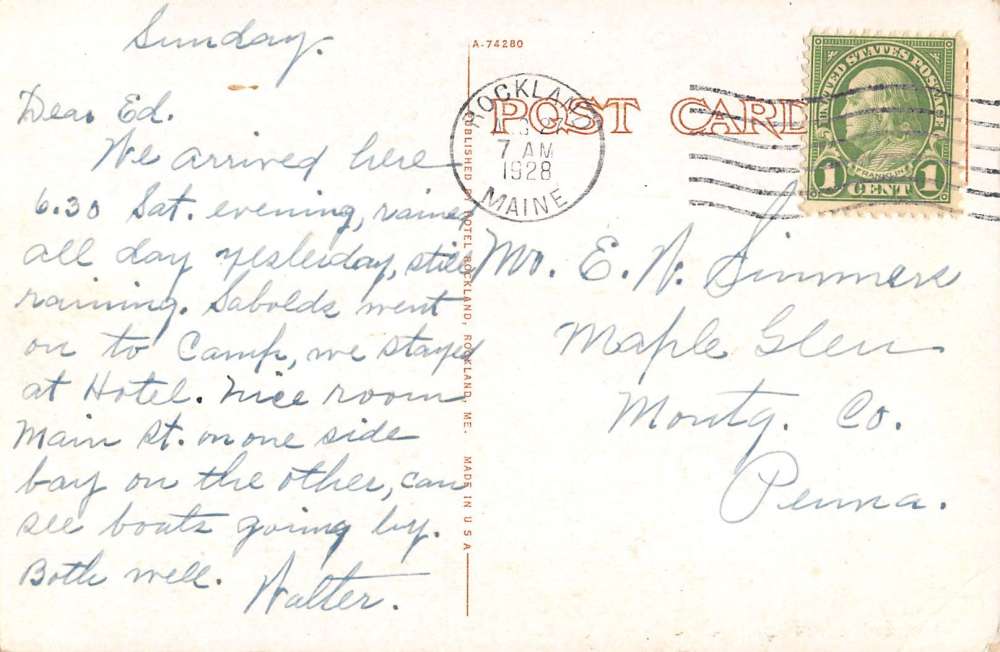 Sunday.
Dear Ed.
We arrived here
6.30 Sat. evening, rained
all day yesterday, still
raining. Sabolds went
on to Camp, we stayed
at Hotel. Nice room
Main St. on one side
bay on the other, can
see boats going by.
Both well.
Walter.
A-74280
PUBLISHED BY HOTEL ROCKLAND, ROCKLAND, ME. MADE IN U S A
POST CARD
ROCKLAND
7 AM
1928
MAINE
UNITED STATES POSTAGE
FRANKLIN
1 CENT 1
Mr. E. N. Simmers
Maple Glen
Montg. Co.
Penna.